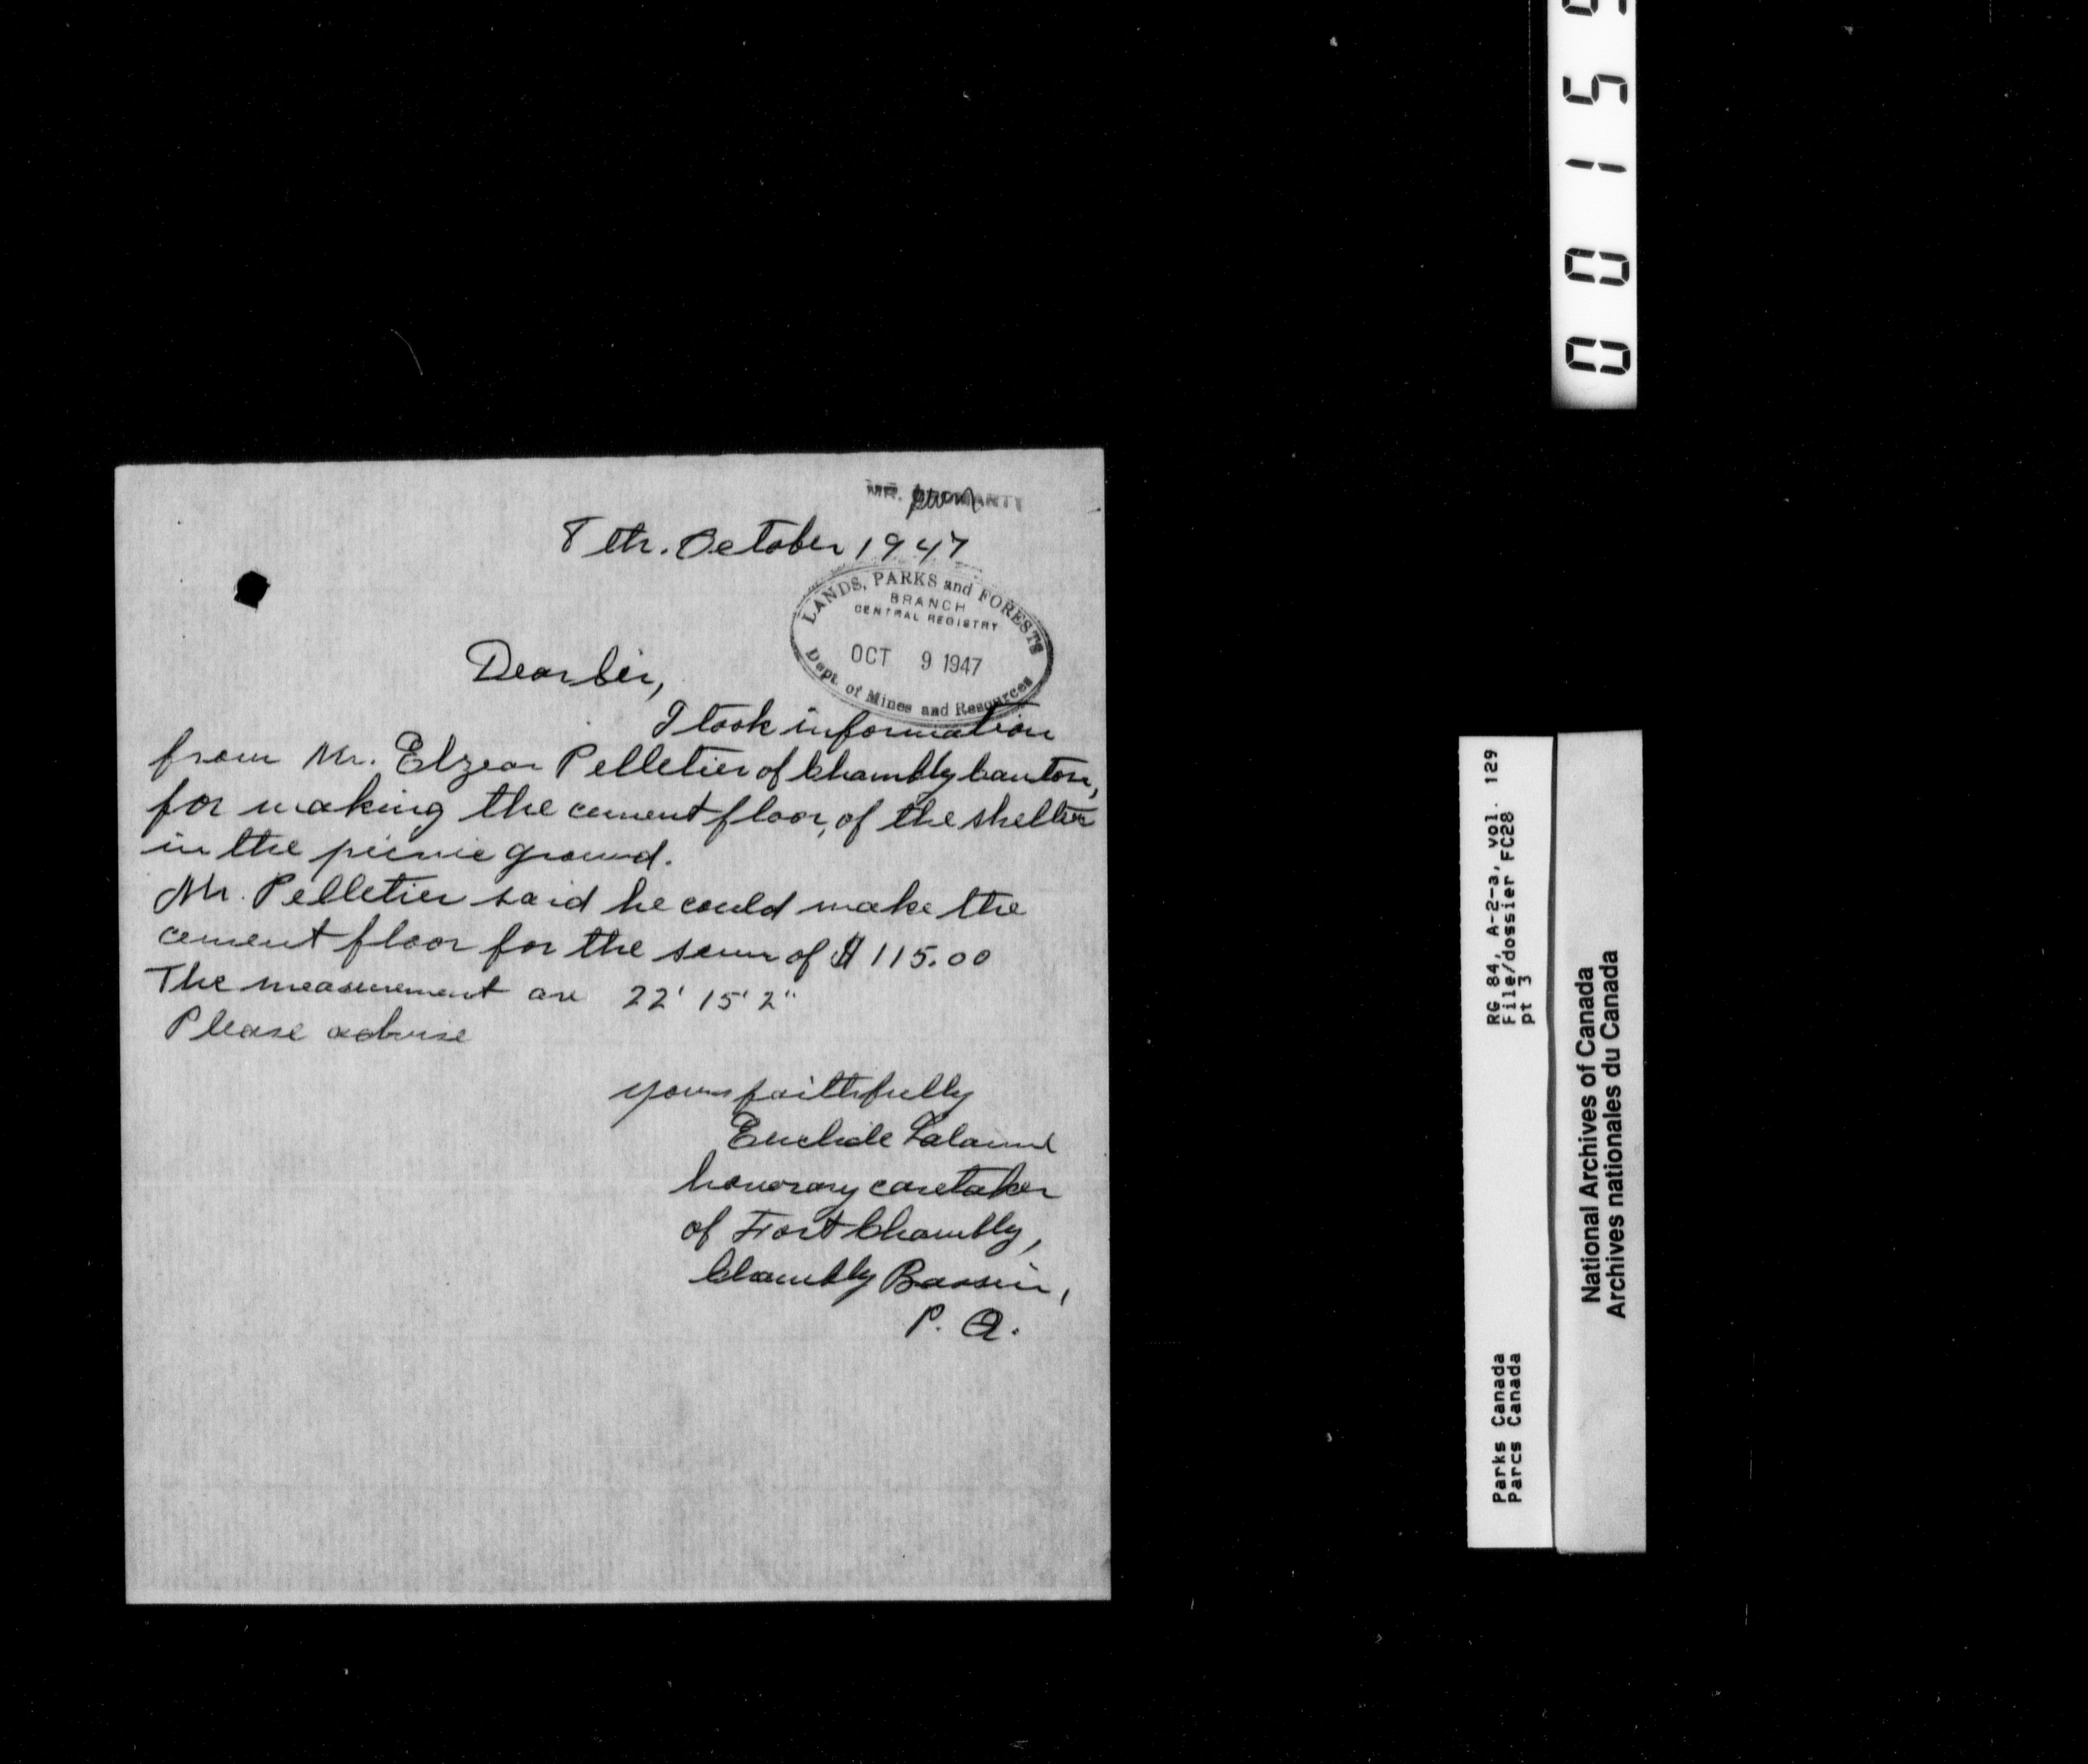 MR.
8th. October 1947
LANDS, PARKS and FORESTS
BRANCH
CENTRAL REGISTRY
OCT 9 1947
Dept. of Mines and Resources
Dear Sir,
I took information
from Mr. Elzear Pelletier of Chambly Canton,
for making the cement floor, of the shelter
in the picnic ground.
Mr. Pelletier said he could make the
cement floor for the sum of $115.00
The measurement are 22' 15' 2"
Please advise
yours faithfully
Euclide
honorary caretaker
of Fort Chambly,
Chambly Bassin,
P. Q.
0015
RG 84, A-2-a, vol. 129
File/dossier FC28
pt 3
Parks Canada
Parcs Canada
National Archives of Canada
Archives nationales du Canada